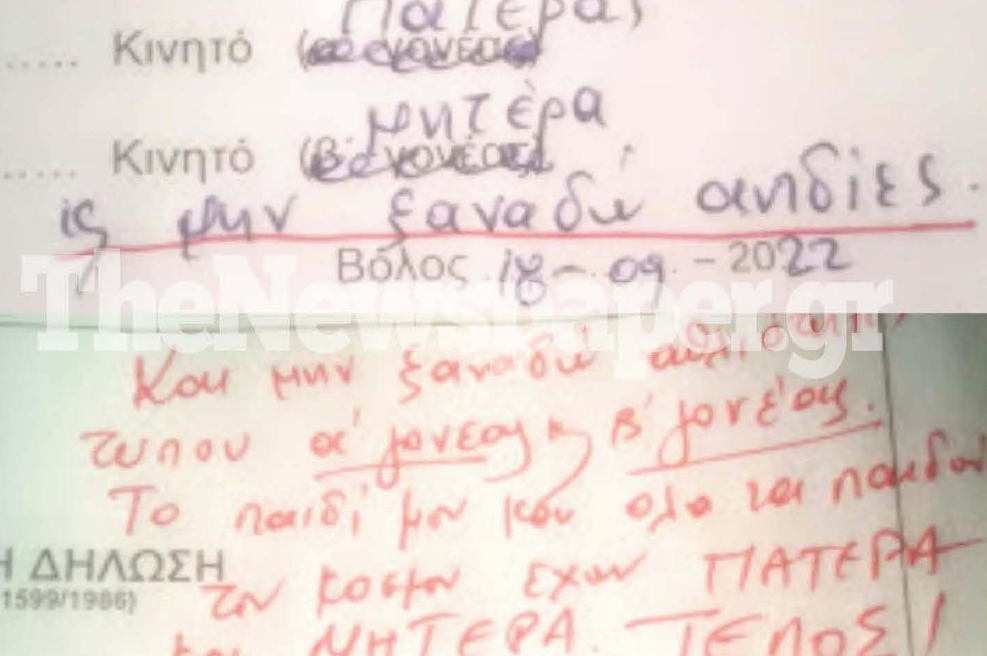 Πατέρα)
..... Κινητό (α' γονέας)
μητέρα
..... Κινητό (β' γονέας)
ις μην ξαναδώ αηδίες.
Βόλος 18 - 09 - 2022
TheNewspaper.gr
Και μην ξαναδώ αθλιότητες
τυπου α' γονεας κ β' γονέας.
Το παιδί μου και ολα τα παιδιά
Η ΔΗΛΩΣΗ
1599/1986)
του κοσμου εχουν ΠΑΤΕΡΑ
και ΜΗΤΕΡΑ. ΤΕΛΟΣ!